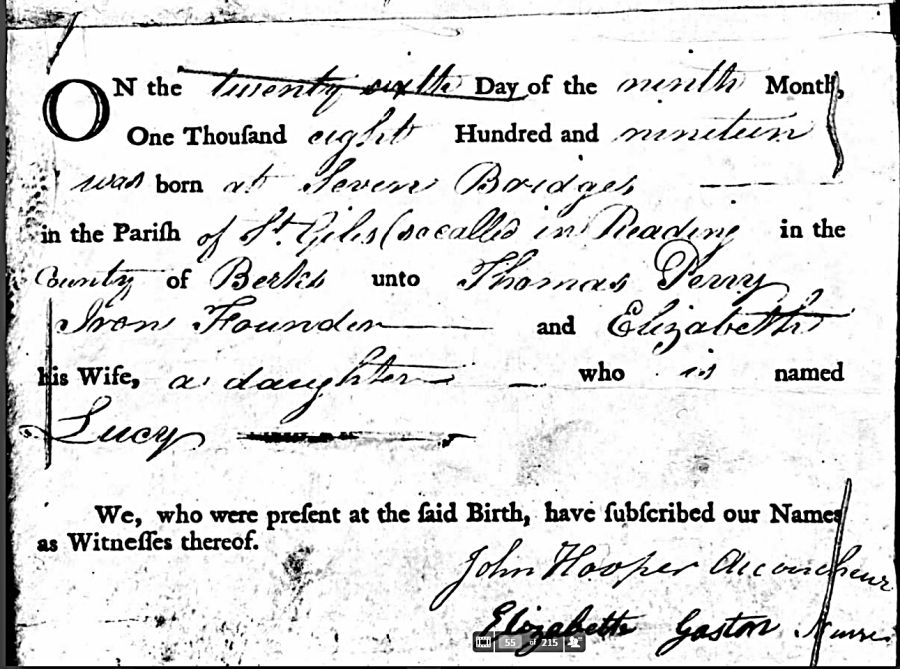 ON the twenty sixth Day of the ninth Month,
One Thouſand eight Hundred and nineteen
was born at Seven Bridges
in the Pariſh of St. Giles (so called in Reading in the
County of Berks unto Thomas Perry
Iron Founder and Elizabeth
his Wife, a daughter who is named
Lucy
We, who were preſent at the ſaid Birth, have ſubſcribed our Names
as Witneſſes thereof.
John Hooper Accoucheur
Elizabeth Gaston Nurse
55 of 215